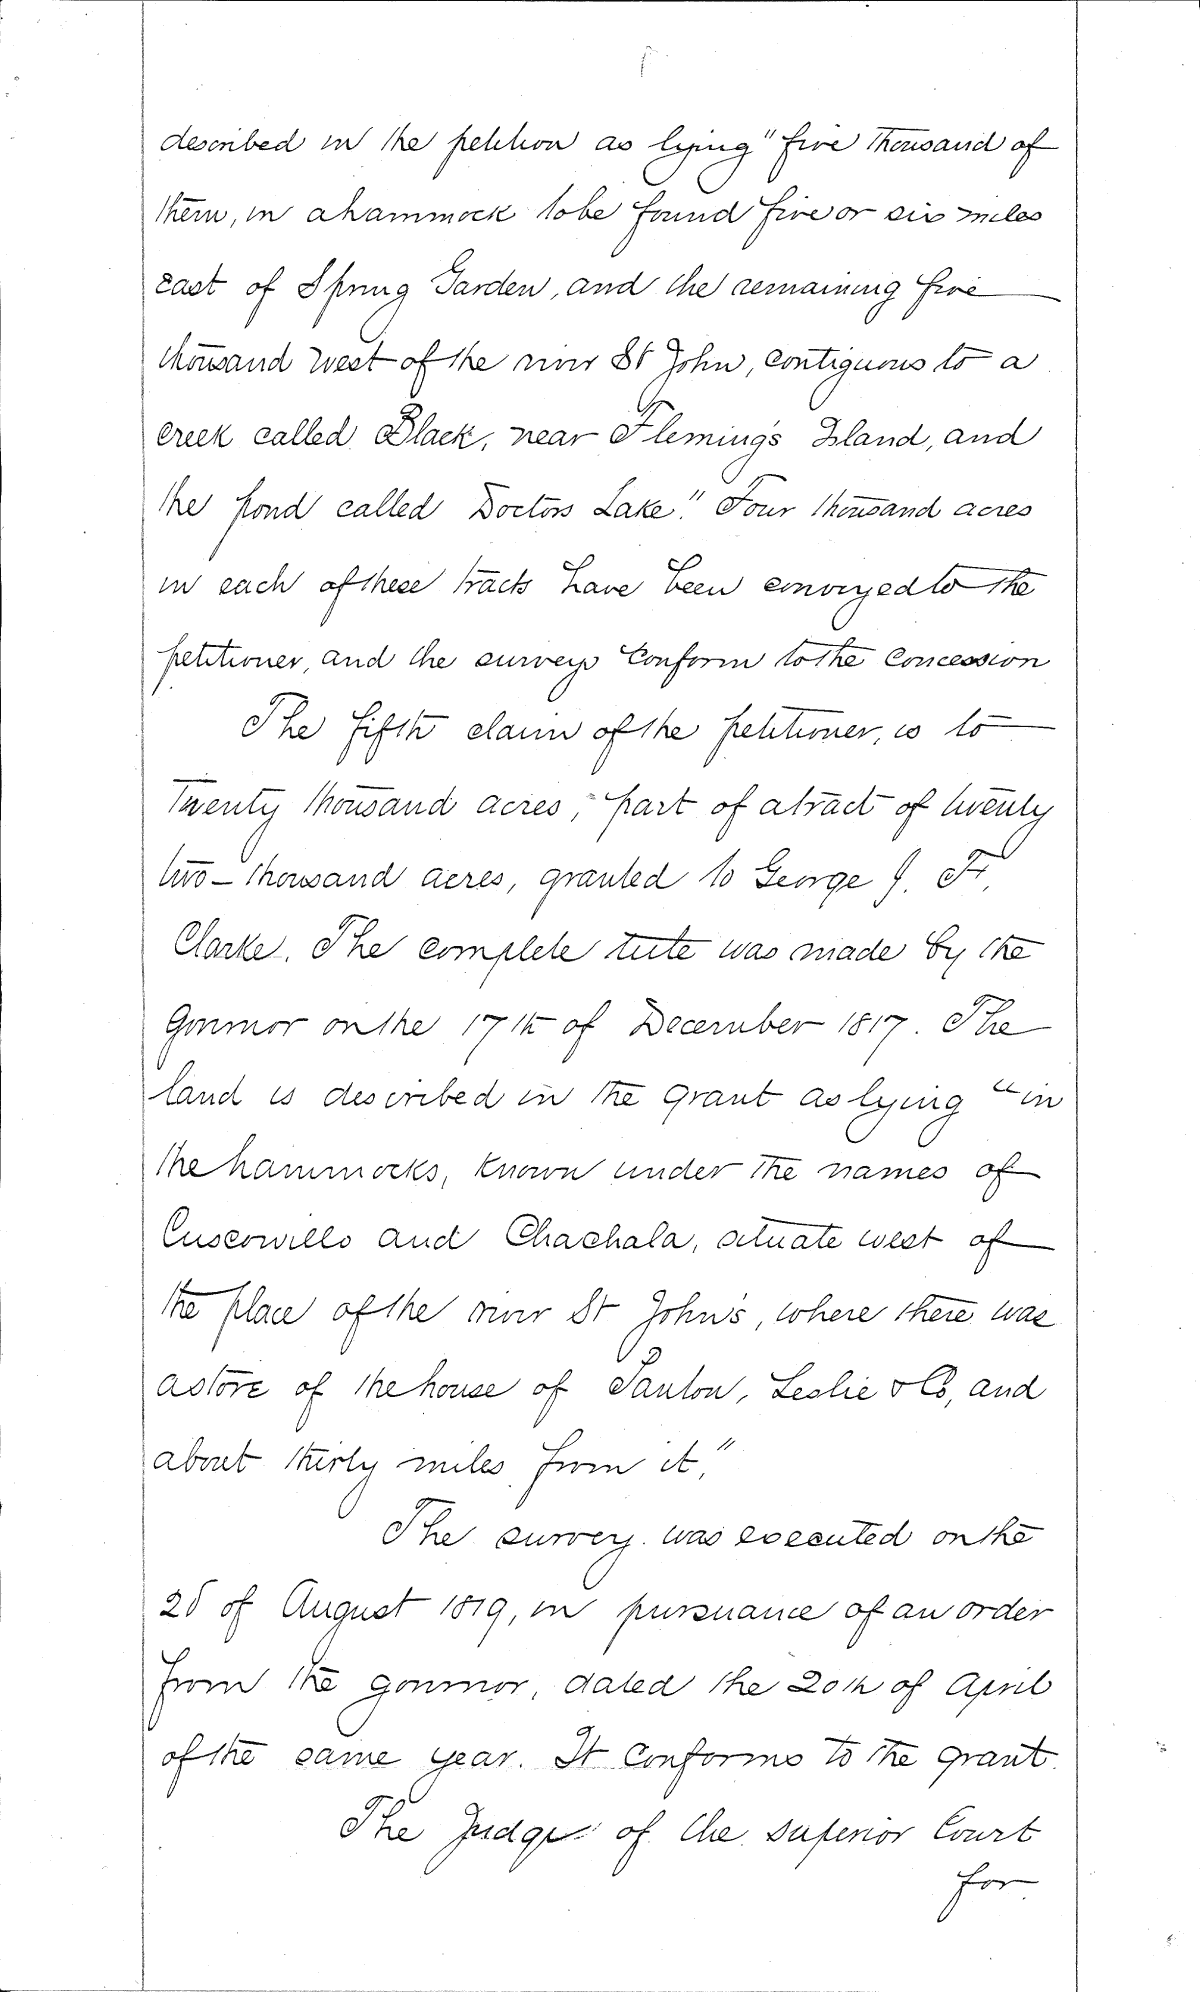 described in the petition as lying "five thousand of
them, in a hammock to be found five or six miles
east of Spring Garden, and the remaining five
thousand west of the river St John, contiguous to a
creek called Black, near Fleming's Island, and
the pond called Doctors Lake." Four thousand acres
in each of these tracts have been conveyed to the
petitioner, and the surveys conform to the concession
The fifth claim of the petitioner, is to
Twenty thousand acres, part of a tract of twenty
two-thousand acres, granted to George J. F.
Clarke. The complete title was made by the
Governor on the 17th of December 1817. The
land is described in the grant as lying "in
the hammocks, known under the names of
Cuscowillo and Chachala, situate west of
the place of the river St John's, where there was
a store of the house of Panton, Leslie & Co, and
about thirty miles from it,"
The survey was executed on the
25 of August 1819, in pursuance of an order
from the governor, dated the 20th of April
of the same year. It conforms to the grant.
The Judge of the Superior Court
for